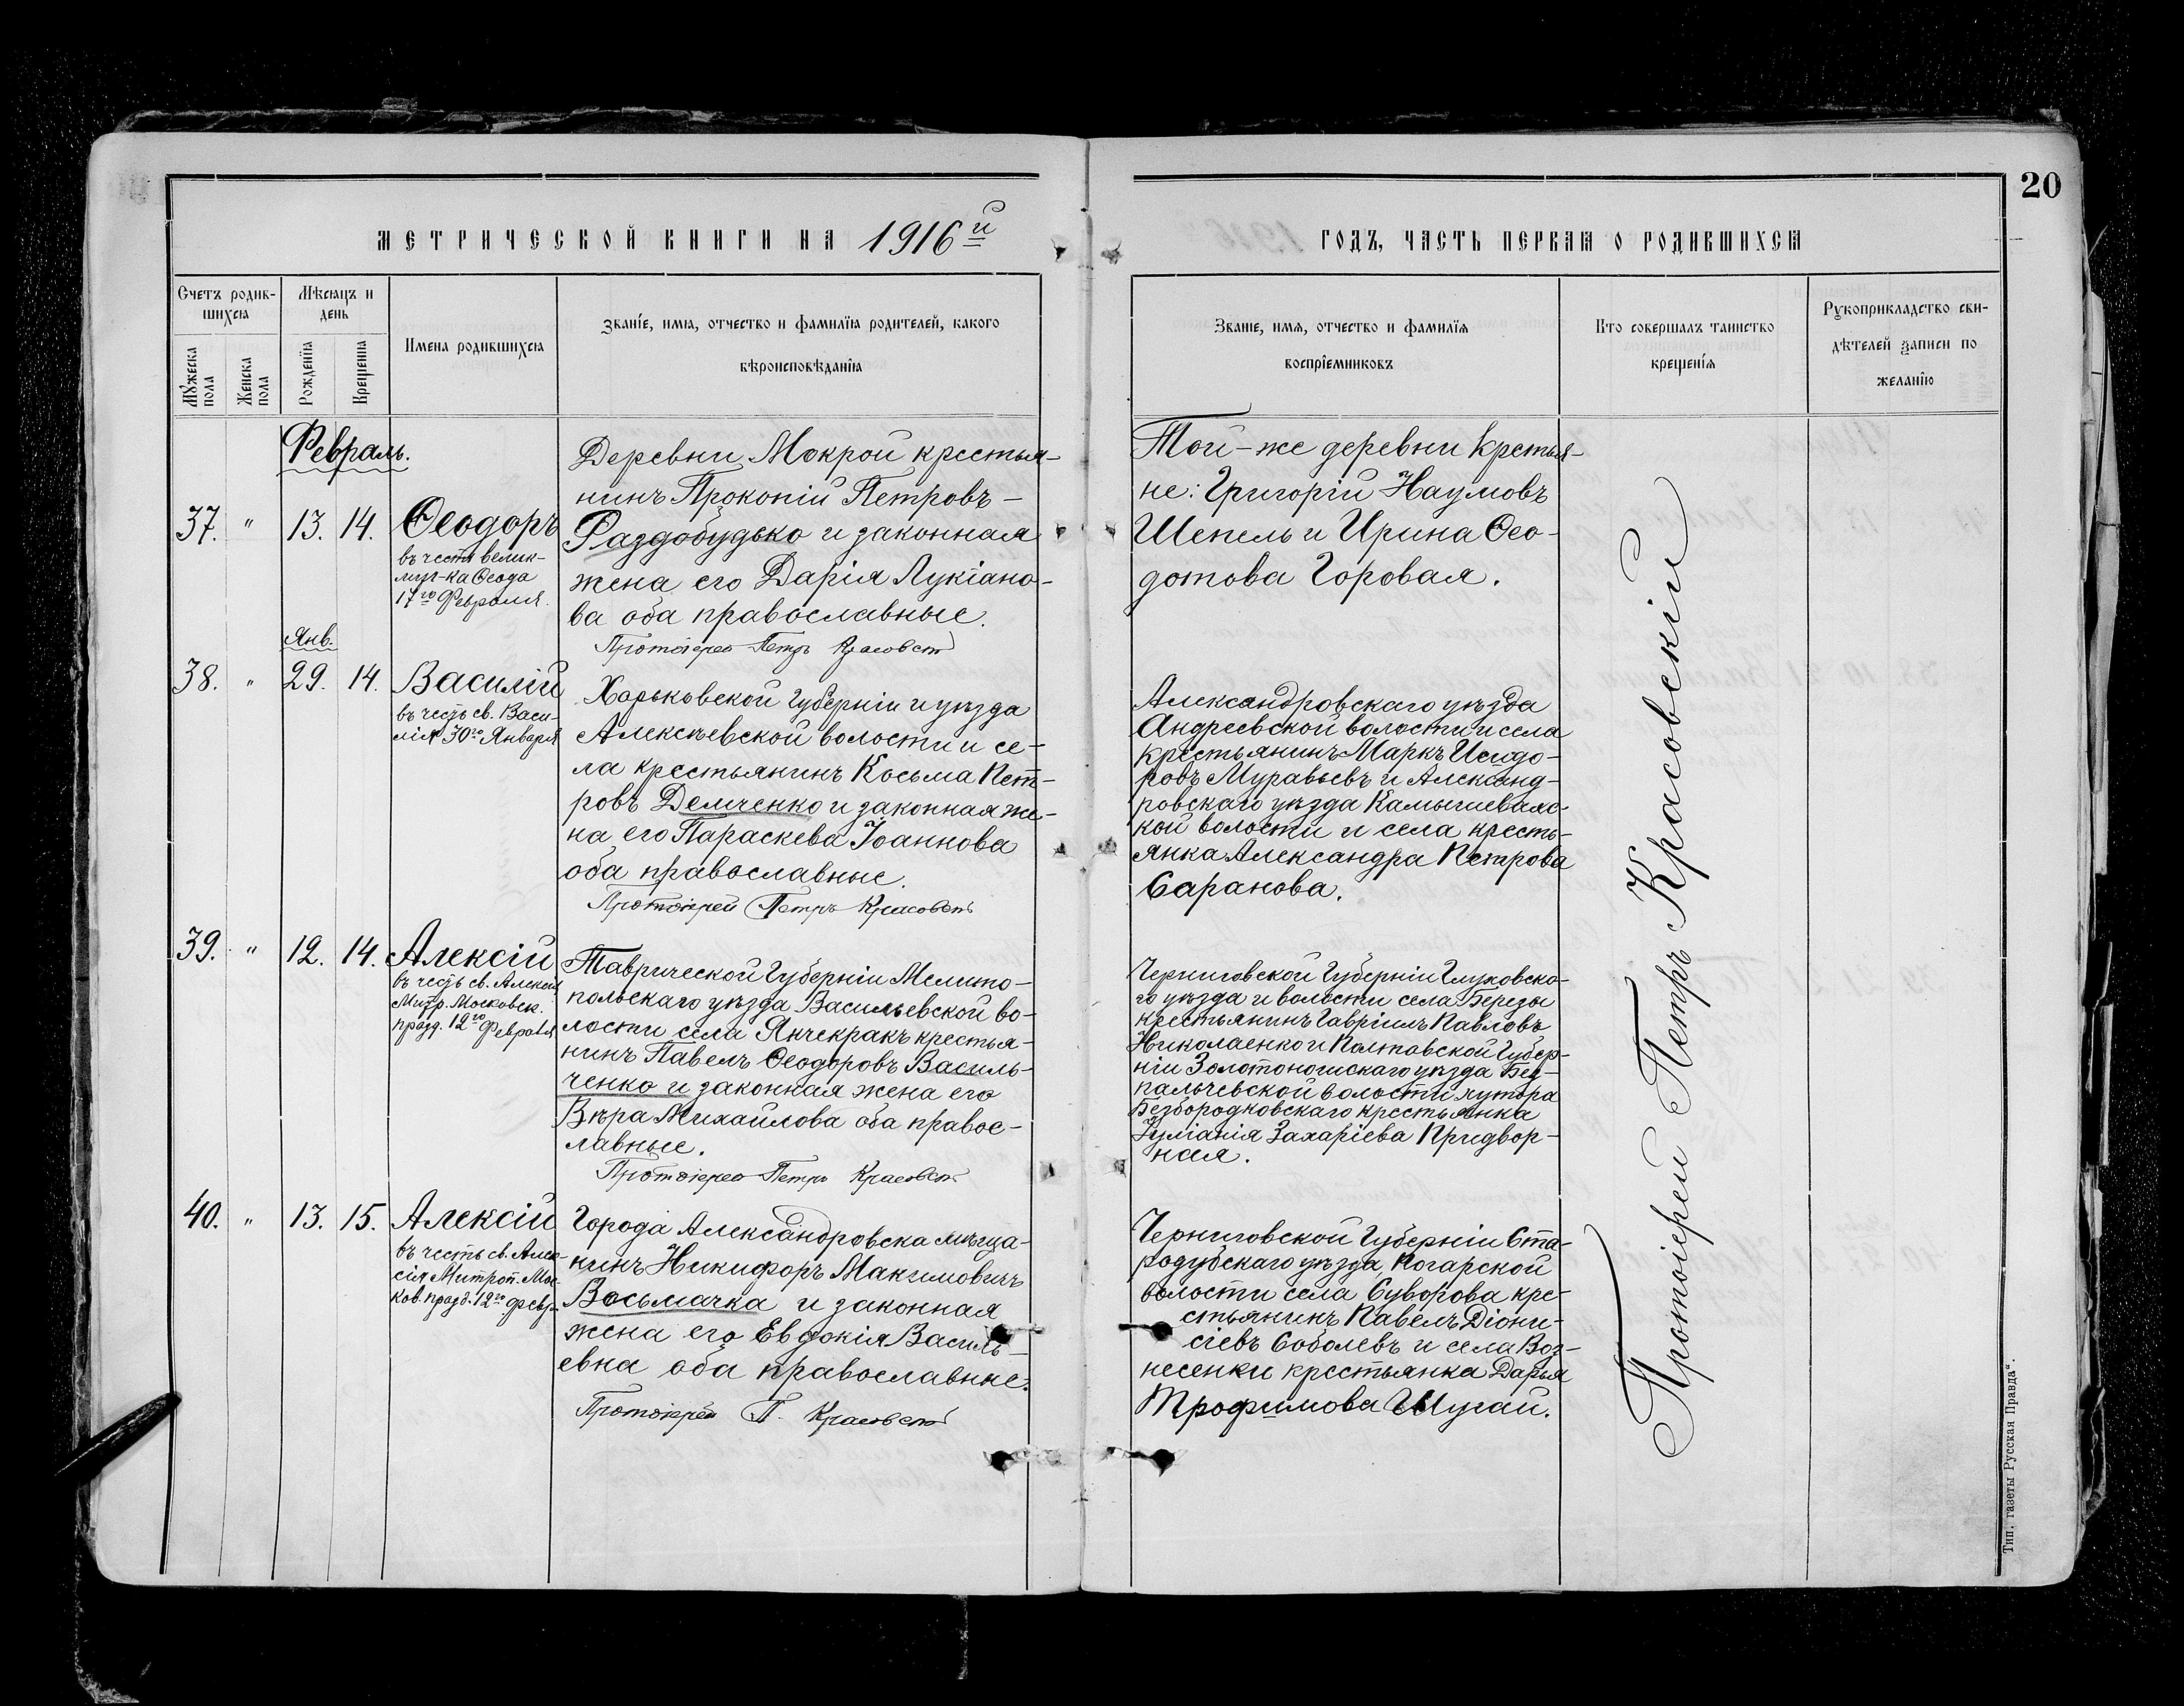 20
МЕТРИЧЕСКОЙ КНИГИ НА 1916й
ГОДЪ, ЧАСТЬ ПЕРВАЯ О РОДИВШИХСЯ
Счетъ родив-
шихся
Мужеска
пола
Женска
пола
Мѣсяцъ и
день
Рожденїя
Крещенїя
Имена родившихся
Званїе, имя, отчество и фамилїя родителей, какого
вѣроисповѣданїя
Званїе, имя, отчество и фамилїя
воспрїемниковъ
Кто совершалъ таинство
крещенїя
Рукоприкладство сви-
дѣтелей записи по
желанїю
Февраль.
37. " 13. 14. Ѳеодоръ
въ честь велик-
муч-ка Ѳеода
17го Февраля.
Деревни Мокрой крестья-
нинъ Прокопій Петровъ-
Раздобудько и законная
жена его Дарія Лукіано-
ва оба православные.
Протоіерей Петръ Красовскій
Той-же деревни крестья-
не: Григорій Наумовъ
Шепель и Ирина Ѳео-
дотова Горовая.
Янв.
38. " 29. 14. Василій
въ честь св. Васи-
лія 30го Января
Харьковской губерніи и уѣзда
Алексѣевской волости и се-
ла крестьянинъ Косьма Пет-
ровъ Демченко и законная же-
на его Параскева Іоаннова
оба православные.
Протоіерей Петръ Красовскій
Александровскаго уѣзда
Андреевской волости и села
крестьянинъ Маркъ Исидо-
ровъ Муравьевъ и Александ-
ровскаго уѣзда Камышевахс-
кой волости и села кресть-
янка Александра Петрова
Саранова.
39. " 12. 14. Алексій
въ честь св. Алексія
Митр. Московск.
празд. 12го Февраля
Таврической Губерніи Мелито-
польскаго уѣзда Васильевской во-
лости села Янчекракъ крестья-
нинъ Павелъ Ѳеодоровъ Василь-
ченко и законная жена его
Вѣра Михайлова оба правос-
лавные.
Протоіерей Петръ Красовскій
Черниговской Губерніи Глуховска-
го уѣзда и волости села Березы
крестьянинъ Гавріилъ Павловъ
Николаенко и Полтавской Губер-
ніи Золотоношскаго уѣзда Без-
пальчевской волости хутора
Безбородковскаго крестьянка
Іуліанія Захаріева Придвор-
ная.
40. " 13. 15. Алексій
въ честь св. Алек-
сія Митроп. Мос-
ков. празд. 12го февр.
Города Александровска мѣща-
нинъ Никифоръ Максимовичъ
Восьмачка и законная
жена его Евдокія Василь-
евна оба православные.
Протоіерей П. Красовскій
Черниговской Губерніи Ста-
родубскаго уѣзда Погарской
волости села Суворова кре-
стьянинъ Павелъ Діони-
сіевъ Соболевъ и села Воз-
несенки крестьянка Дарья
Трофимова Шугай.
Протоіерей Петръ Красовскій
Тип. газеты Русская Правда".